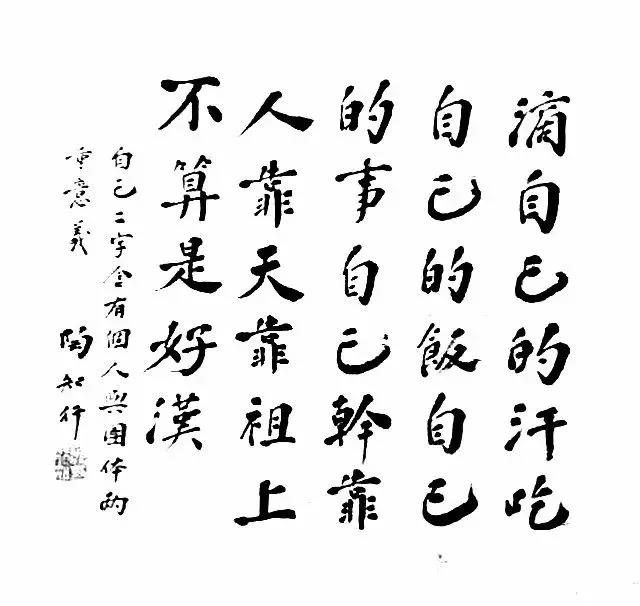 滴自己的汗吃
自己的飯自己
的事自己幹靠
人靠天靠祖上
不算是好漢
自己二字含有個人與團体両
重意義
陶知行